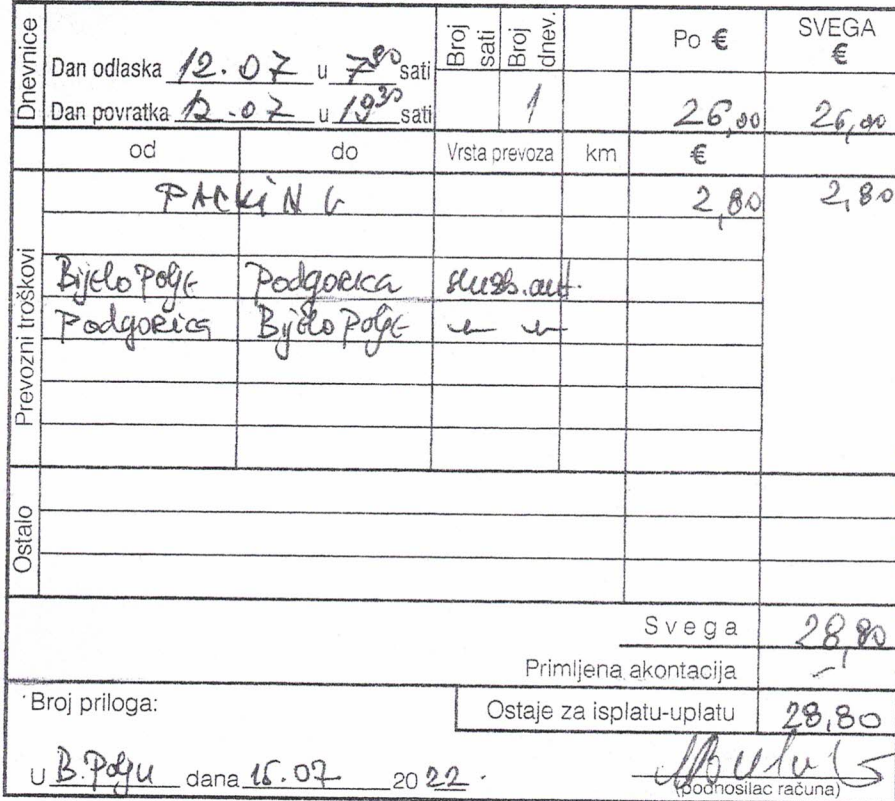 Dnevnice
Dan odlaska 12.07 u 7 sati
Dan povratka 12.07 u 19³⁰ sati
Broj sati
Broj dnev.
1
Po €
26,00
SVEGA €
26,00
od do Vrsta prevoza km €
Prevozni troškovi
PACKiNG 2,80 2,80
Bijelo Polje Podgorica služb.aut.
Podgorica Bijelo Polje
Ostalo
Svega 28,80
Primljena akontacija -
Broj priloga:
Ostaje za isplatu-uplatu 28,80
U B.Polju dana 15.07 2022.
(podnosilac računa)